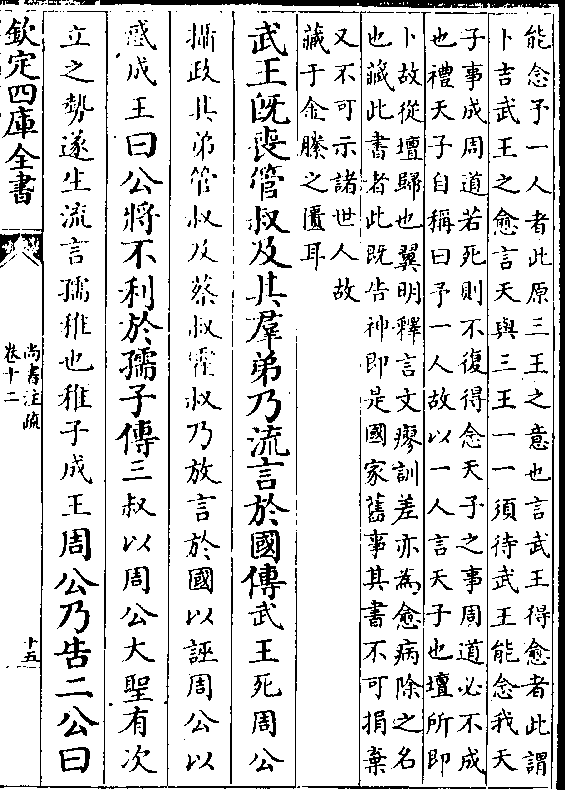 能念予一人者此原三王之意也言武王得愈者此謂
卜吉武王之愈言天與三王一一須待武王能念我天
子事成周道若死則不復得念天子之事周道必不成
也禮天子自稱曰予一人故以一人言天子也壇所即
卜故從壇歸也翼明釋言文瘳訓差亦為愈病除之名
也藏此書者此既告神即是國家舊事其書不可捐棄
又不可示諸世人故
藏于金縢之匱耳
武王旣喪管叔及其羣弟乃流言於國傳武王死周公
攝政其弟管叔及蔡叔霍叔乃放言於國以誣周公以
惑成王曰公將不利於孺子傳三叔以周公大聖有次
立之勢遂生流言孺稚也稚子成王周公乃告二公曰
欽定四庫全書
尚書注疏
卷十二
十五